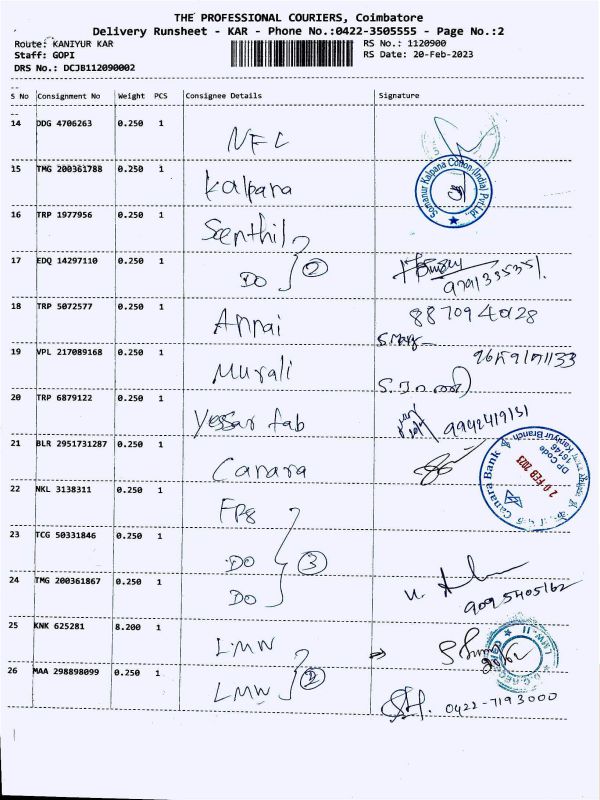 THE PROFESSIONAL COURIERS, Coimbatore
Delivery Runsheet - KAR - Phone No.:0422-3505555 - Page No.:2
Route: KANIYUR KAR
RS No.: 1120900
Staff: GOPI
RS Date: 20-Feb-2023
DRS No.: DCJB112090002
S No Consignment No Weight PCS Consignee Details Signature
14 DDG 4706263 0.250 1 NFC
15 TMG 200361788 0.250 1 Kalpana
Somanur Kalpana Cotton (India) Pvt Ltd.
16 TRP 1977956 0.250 1 Senthil
17 EDQ 14297110 0.250 1 DO 2
9791335351
18 TRP 5072577 0.250 1 Annai 8870940128
19 VPL 217089168 0.250 1 Murali
20 TRP 6879122 0.250 1 Yessar fab 9942419131
21 BLR 2951731287 0.250 1 Canara
Canara Bank
Kaniyur Branch
DP Code
16146
20 FEB 2023
22 NKL 3138311 0.250 1
23 TCG 50331846 0.250 1 DO 3
24 TMG 200361867 0.250 1 DO 9095405162
25 KNK 625281 8.200 1 LMW
LMW-II
26 MAA 298898099 0.250 1 LMW 2 0422-7193000